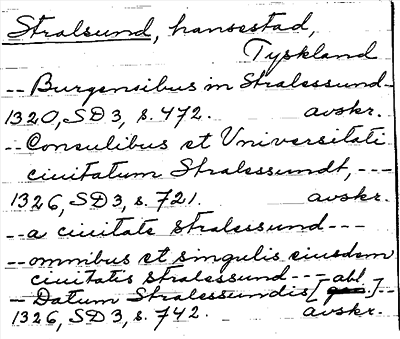 Stralsund, hansestad,
Tyskland
-- Burgensibus in Stralessund -
1320, SD 3, s. 472. avskr.
-- Consulibus et Universitati
ciuitatum Stralessundt, ---
1326, SD 3, s. 721. avskr.
-- a ciuitate Stralessund ---
-- omnibus et singulis eiusdem
ciuitatis Stralessund --- abl.
- Datum Stralessundis [ ] --
1326, SD 3, s. 742. avskr.